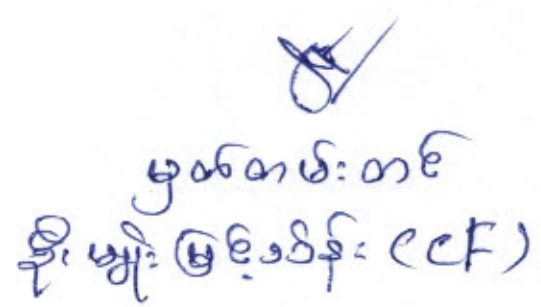 မှတ်တမ်းတင်
ဦးမျိုးမြင့်သိန်း (CCF)